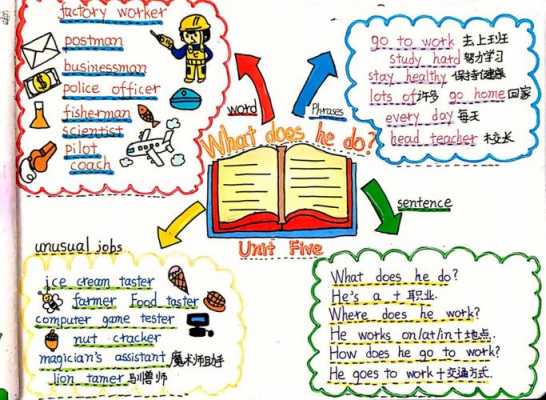 factory worker
postman
businessman
police officer
fisherman
scientist
pilot
coach
word
Phrases
go to work 去上班
study hard 努力学习
stay healthy 保持健康
lots of 许多 go home 回家
every day 每天
head teacher 校长
What does he do?
Unit Five
sentence
unusual jobs
ice cream taster
farmer Food taster
computer game tester
nut cracker
magician's assistant 魔术师助手
lion tamer 驯兽师
What does he do?
He's a + 职业.
Where does he work?
He works on/at/in + 地点.
How does he go to work?
He goes to work + 交通方式.